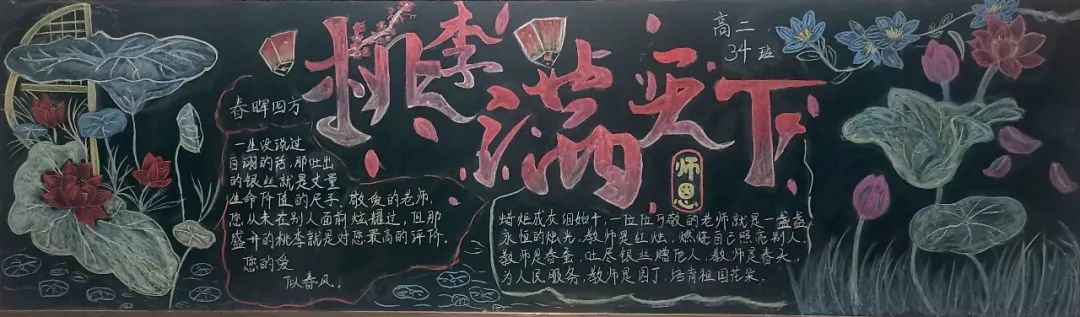 桃李满天下
高二
34班
师恩
春晖四方
一生没说过
自诩的话,那吐出
的银丝就是丈量
生命价值的尺子,敬爱的老师,
您从未在别人面前炫耀过,但那
盛开的桃李就是对您最高的评价.
您的爱
似春风.
蜡炬成灰泪始干,一位位可敬的老师就是一盏盏
永恒的烛光.教师是红烛,燃烧自己照亮别人.
教师是春蚕,吐尽银丝赠他人.教师是春头,
为人民服务,教师是园丁,培育祖国花朵.